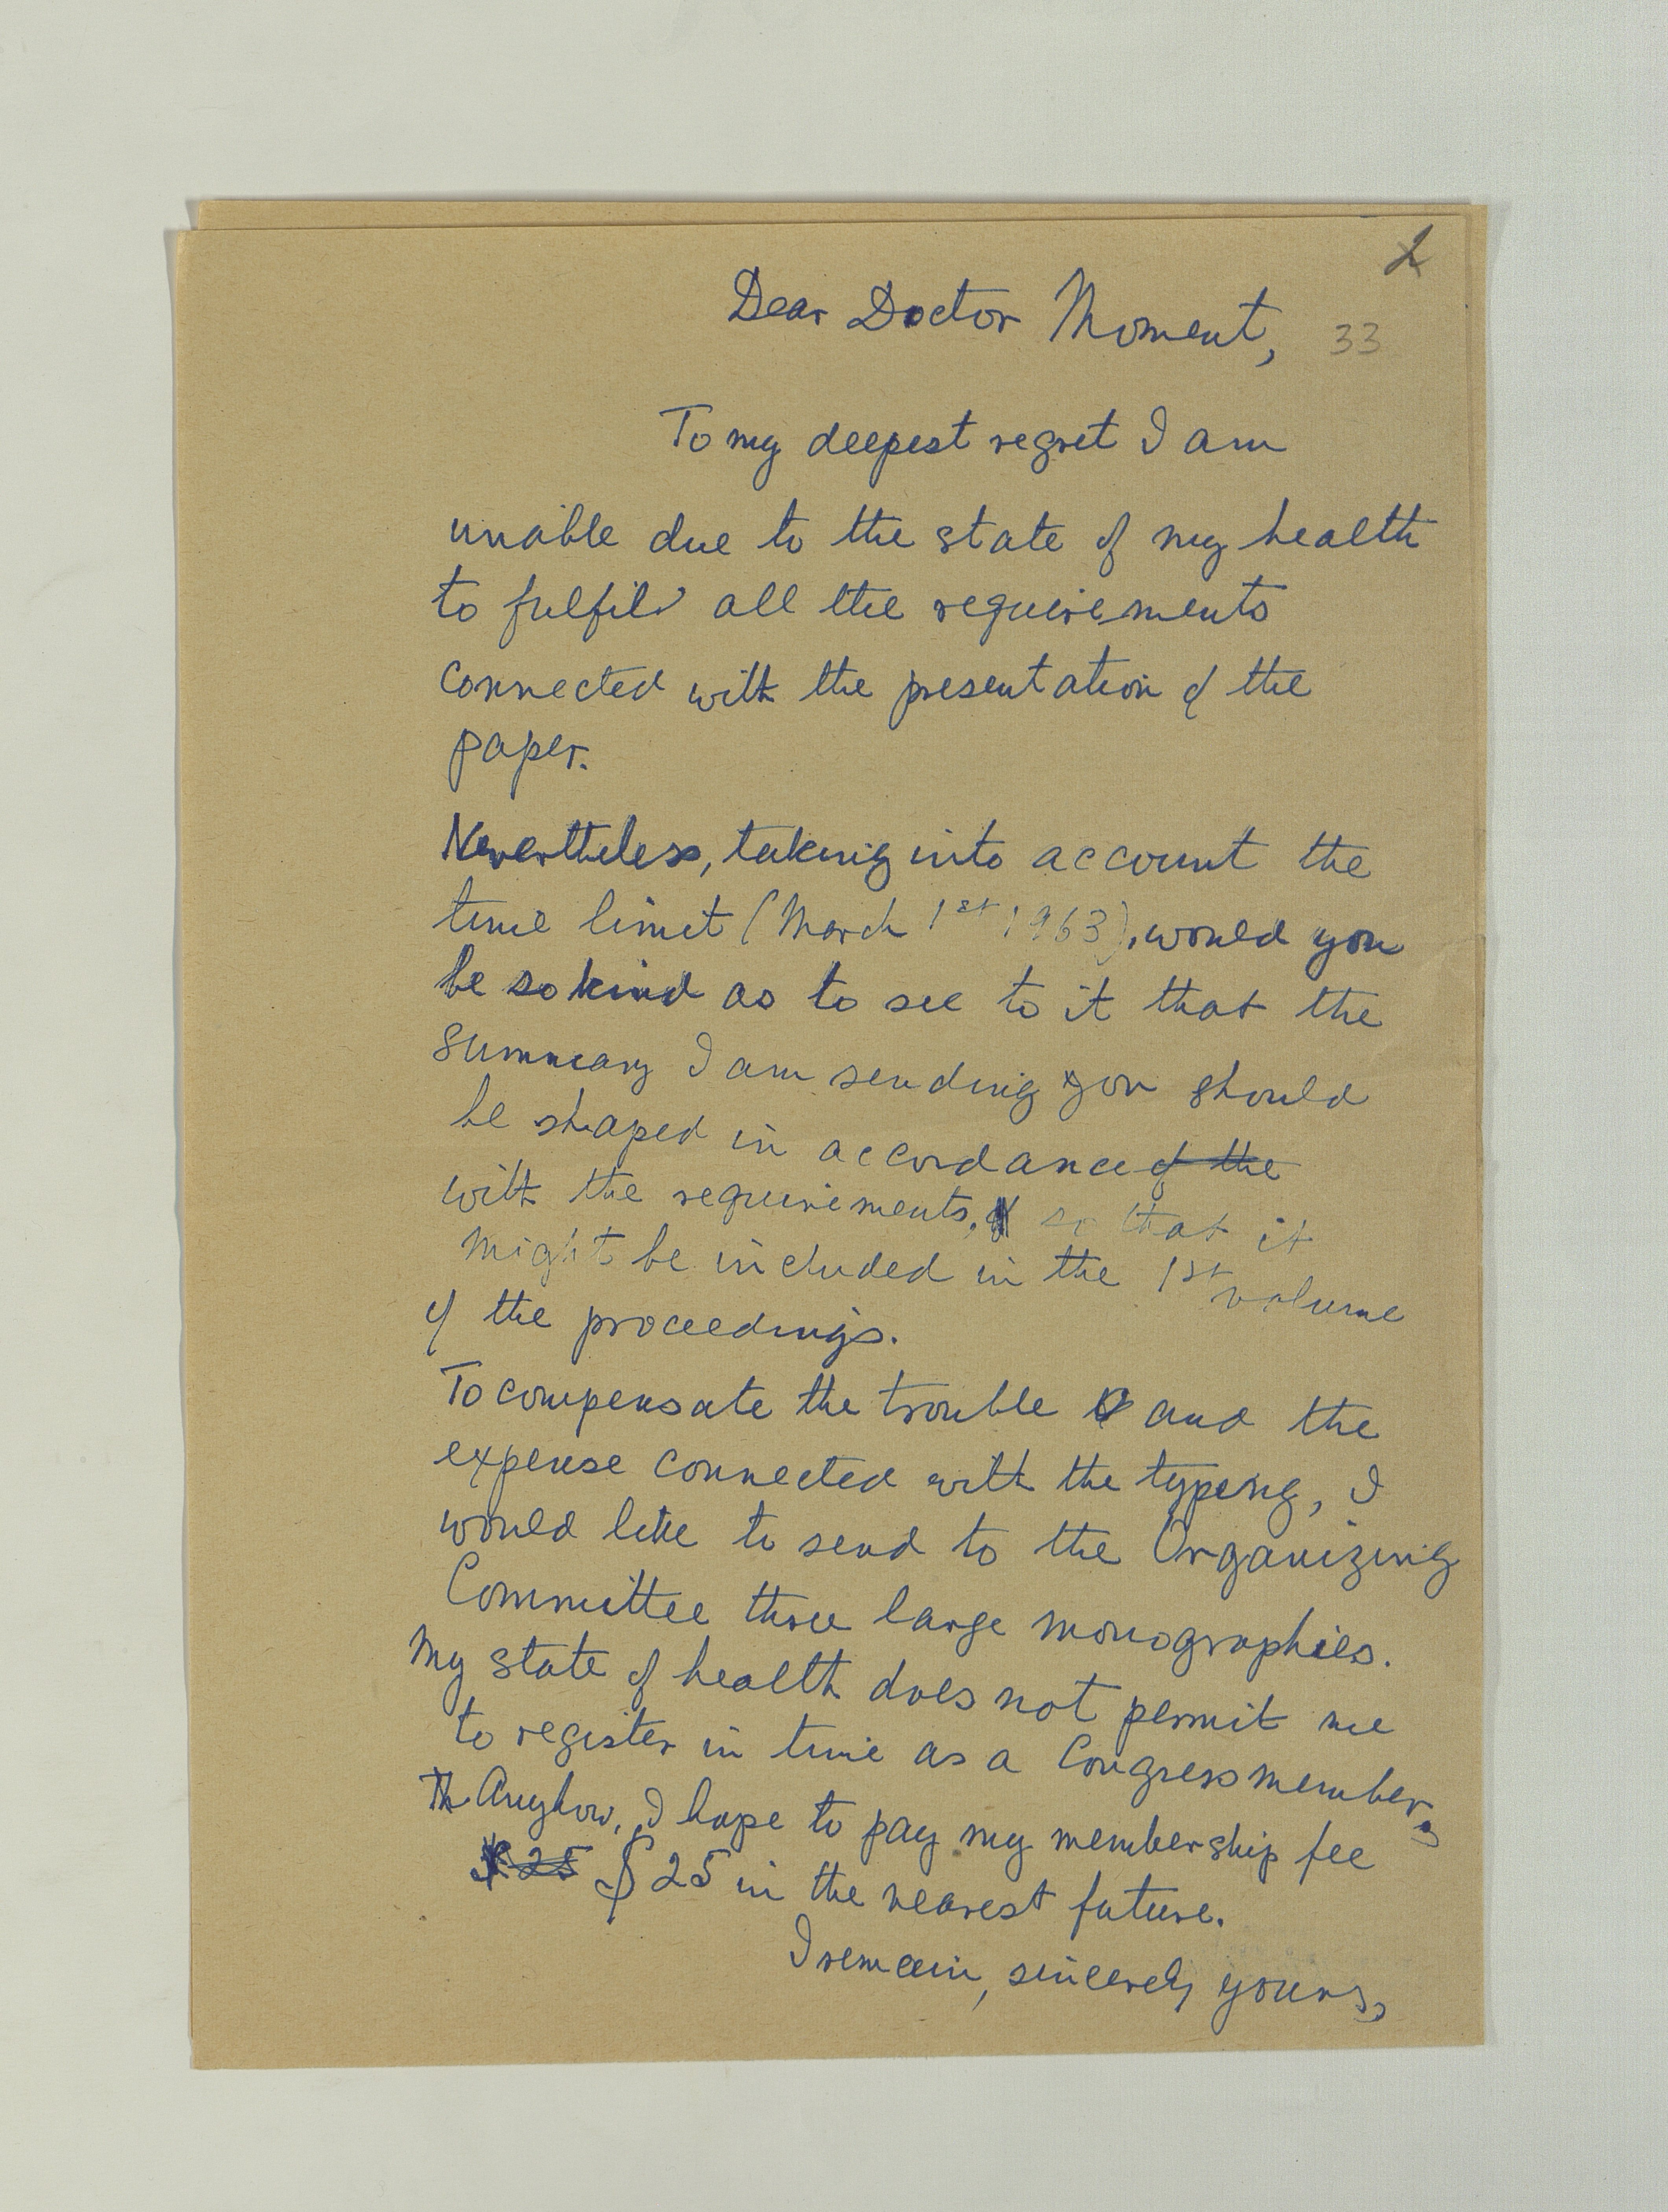 2
Dear Doctor Moment,
33
To my deepest regret I am
unable due to the state of my health
to fulfil all the requirements
connected with the presentation of the
paper.
Nevertheless, taking into account the
time limit (March 1st 1963), would you
be so kind as to see to it that the
summary I am sending you should
be shaped in accordance of the
with the requirements, so that it
might be included in the 1st volume
of the proceedings.
To compensate the trouble and the
expense connected with the typing, I
would like to send to the Organizing
Committee three large monographies.
My state of health does not permit me
to register in time as a Congress member,
Th Anyhow, I hope to pay my membership fee
$ 25 $ 25 in the nearest future.
I remain, sincerely yours,